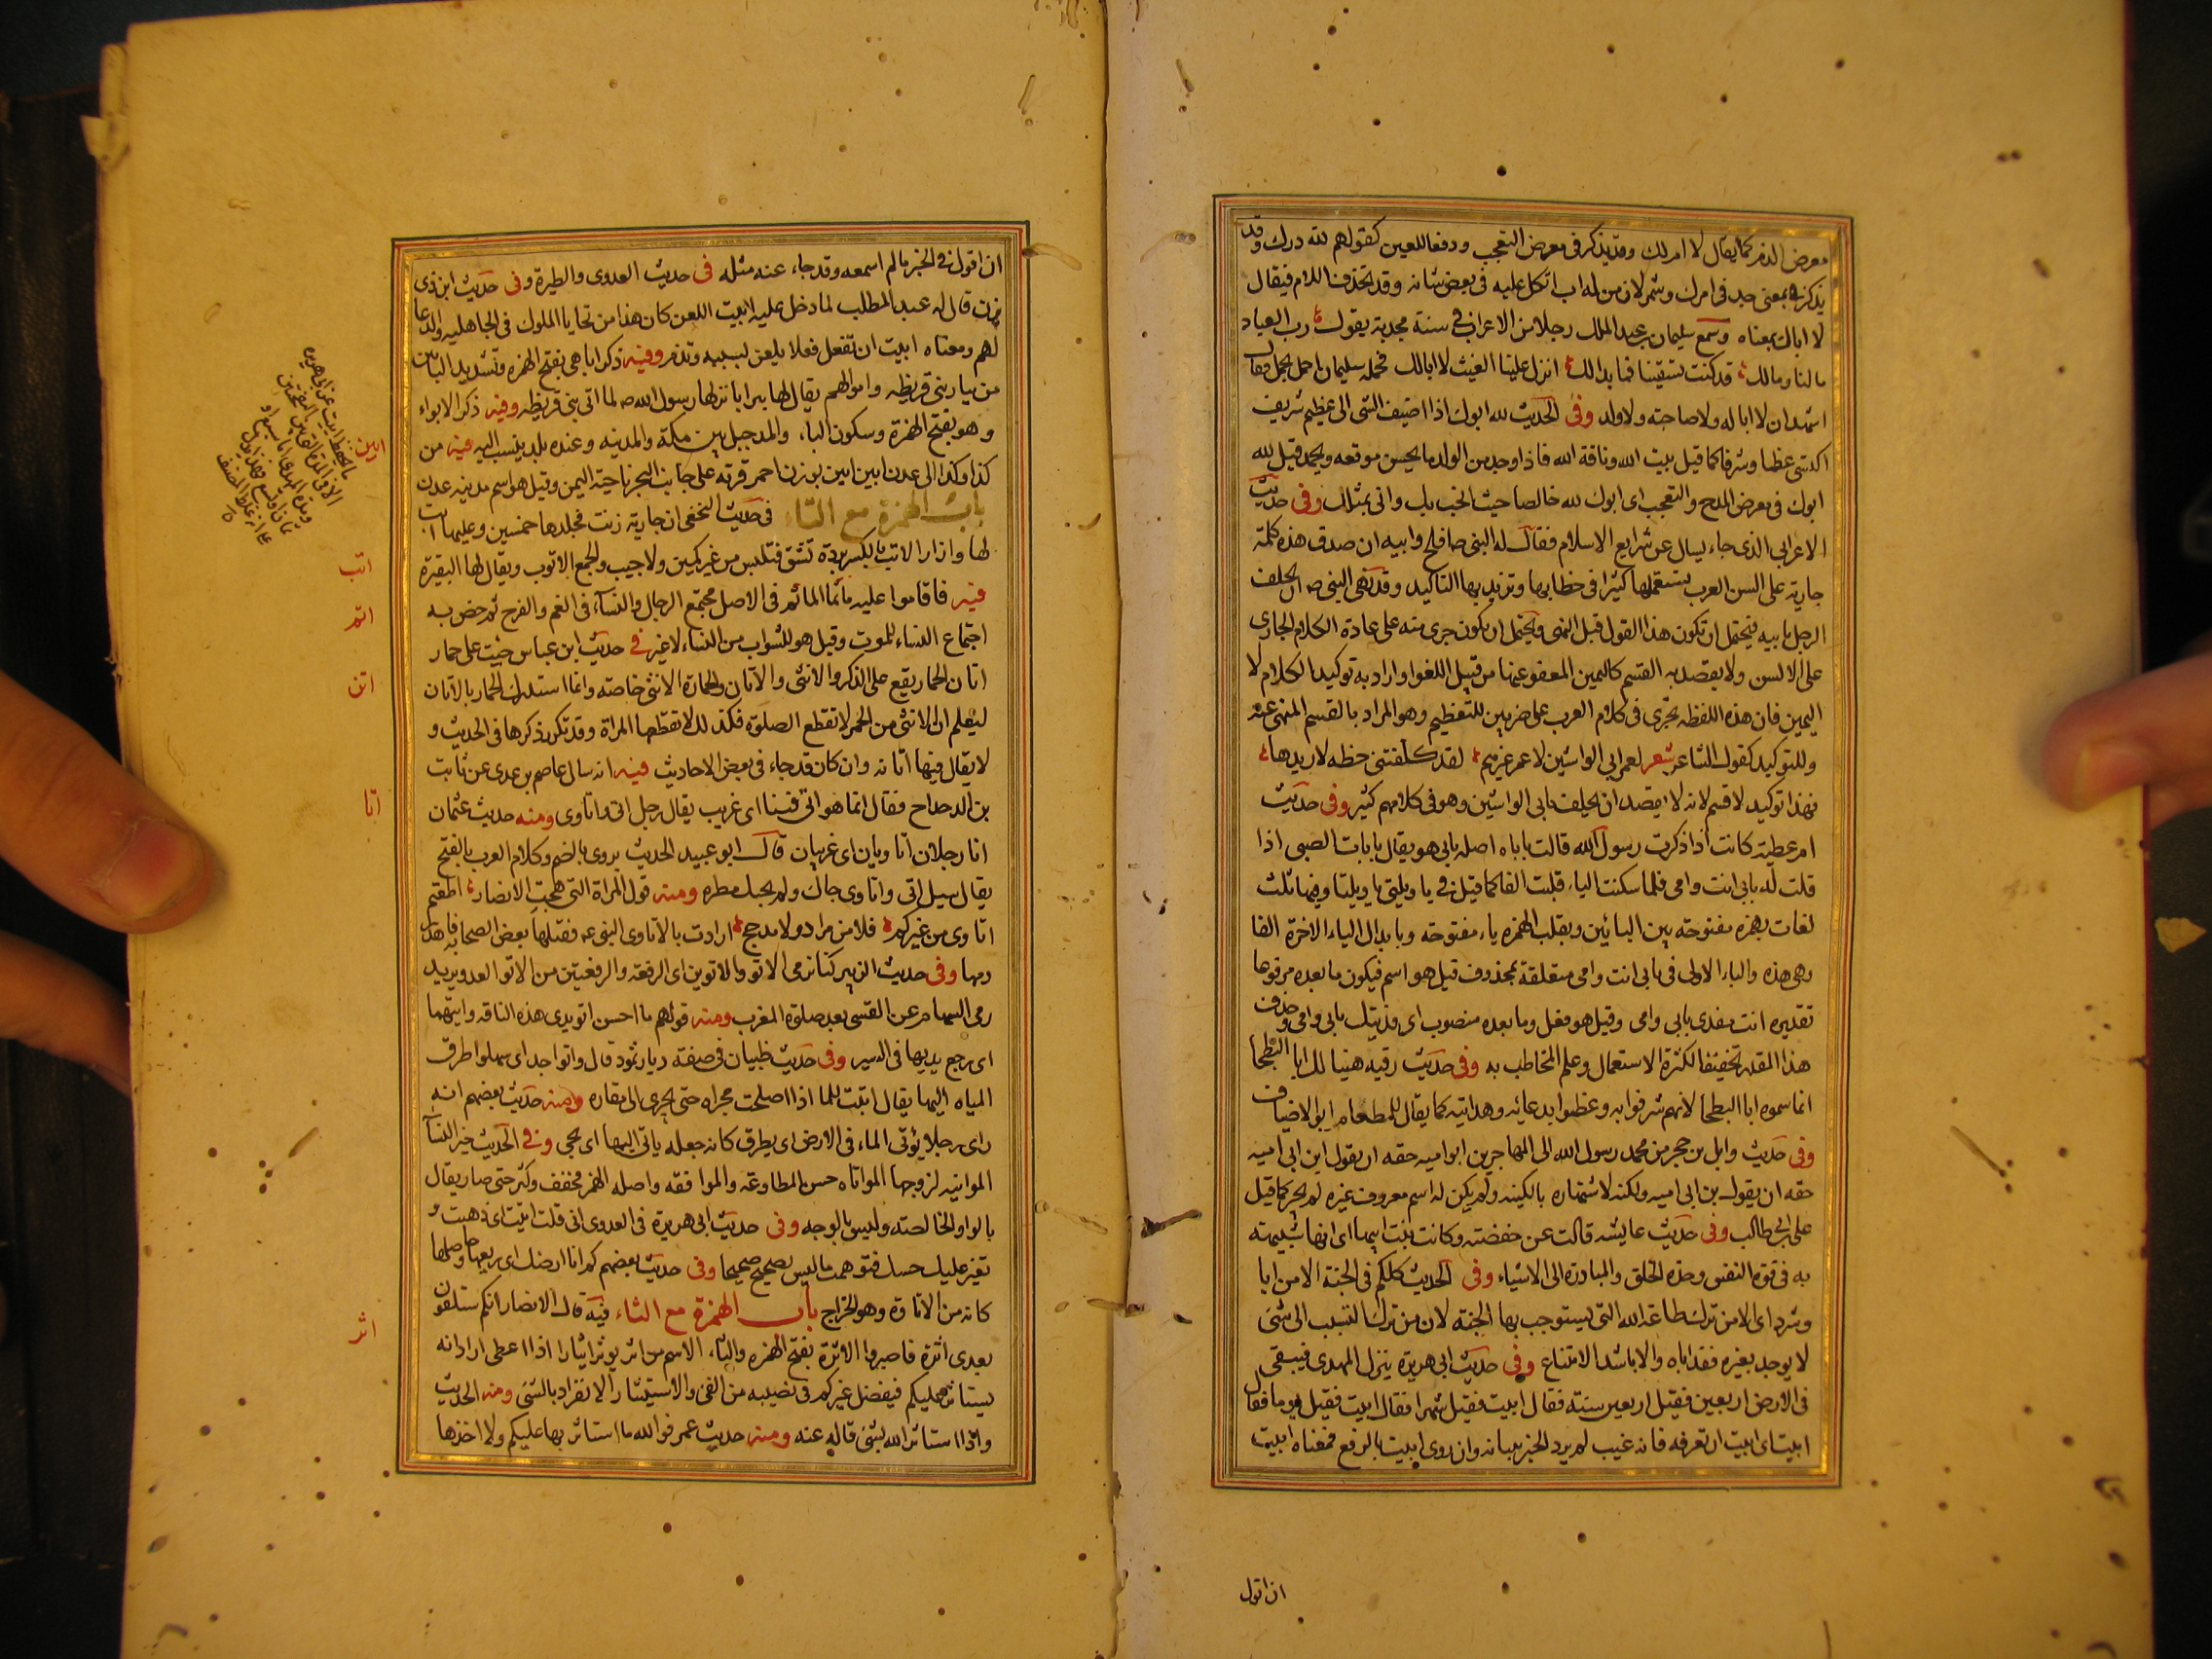 معرض الذم كما يقال لا ام لك وقد يذكر في معرض التعجب ودفعا للعين كقولهم لله درك وقد
يذكر بمعنى جد في امرك وشمر لان من له اب اتكل عليه في بعض شانه وقد تحذف اللام فيقال
لا اباك بمعناه وسمع سليمان بن عبد الملك رجلا من الاعراب في سنة مجدبة يقول رب العباد
ما لنا وما لك قد كنت تسقينا فما بدا لك انزل علينا الغيث لا ابا لك فحمله سليمان احمل محمل وقال
اشهد ان لا ابا له ولا صاحبة ولا ولد وفي الحديث لله ابوك اذا اضيف الشى الى عظيم شريف
اكتسى عظما وشرفا كما قيل بيت الله وناقة الله فاذا وجد من الولد ما يحسن موقعه ويحمد قيل لله
ابوك في معرض المدح والتعجب اى ابوك لله خالصا حيث انجب بك واتى بمثلك وفي حديث
الاعرابي الذى جاء يسال عن شرايع الاسلام فقال له النبى ص افلح وابيه ان صدق هذه كلمة
جارية على السن العرب تستعملها كثيرا في خطابها وتريد بها التاكيد وقد نهى النبى ص ان يحلف
الرجل بابيه فيحتمل ان يكون هذا القول قبل النهى ويحتمل ان يكون جرى منه على عادة الكلام الجارى
على الالسن ولا يقصد به القسم كاليمين المعفو عنها من قبيل اللغو او اراد به توكيد الكلام لا
اليمين فان هذه اللفظه تجرى في كلام العرب على ضربين للتعظيم وهو المراد بالقسم المنهى عنه
وللتوكيد كقول الشاعر شعر لعمر ابى الواشين لا عمر غيرهم لقد كلفتنى خطه لا اريدها
فهذا توكيد لا قسم لانه لا يقصد ان يحلف بابى الواشين وهو في كلامهم كثير وفي حديث
ام عطية كانت اذا ذكرت رسول الله قالت بابا ه اصله بابى هو يقال بابات الصبى اذا
قلت له بابى انت وامى فلما سكنت الياء قلبت الفا كما قيل في يا ويلتى يا ويلتا وفيها ثلث
لغات بهمزة مفتوحة بين البائين وبقلب الهمزه ياء مفتوحه وبابدال الياء الاخرة الفا
وهى هذه والباء الاولى في بابى انت وامى متعلقة بمحذوف قيل هو اسم فيكون ما بعده مرفوعا
تقديره انت مفدى بابى وامى وقيل هو فعل وما بعده منصوب اى فديتك بابى وامى وحذف
هذا المقدر تخفيفا لكثرة الاستعمال وعلم المخاطب به وفي حديث رقيه هنيئا لك ابا البطحا
انما سموه ابا البطحا لانهم شرفوا به وعظموا بدعائه وهدايته كما يقال للمطعام ابو الاضياف
وفي حديث وايل بن حجر من محمد رسول الله الى المهاجر بن ابو اميه حقه ان يقول ابن ابى اميه
حقه ان يقول بن ابى اميه ولكنه لاشتهاره بالكنيه ولم يكن له اسم معروف غيره لم يجر كما قيل
على بن ابى طالب وفي حديث عايشه قالت عن حفصة وكانت بنت ابيها اى انها شبيهة
به في قوة النفس وحدة الخلق والمبادرة الى الاشياء وفي الحديث كلكم في الجنة الا من ابا
وشرد اى الا من ترك طاعة الله التى يستوجب بها الجنة لان من ترك التسبب الى شئ
لا يوجد بغيره فقد اباه والابا شد الامتناع وفي حديث ابى هريرة ينزل المهدى فيبقى
في الارض اربعين فقيل اربعين سنة فقال ابيت فقيل شهرا فقال ابيت فقيل يوما فقال
ابيت اى ابيت ان تعرفه فانه غيب لم يرد الخبر ببيانه وان روى ابيت بالرفع فمعناه ابيت
ان اقول
ان اقول في الخبر ما لم اسمعه وقد جاء عنه مثله في حديث العدوى والطيرة وفي حديث ابن ذى
يزن قال له عبد المطلب لما دخل عليه ابيت اللعن كان هذا من تحايا الملوك في الجاهليه والدعا
لهم ومعناه ابيت ان تفعل فعلا يلعن بسببه وتذم وفيه ذكر ابا هى بفتح الهمزه وتشديد البا بئر
من بيار بنى قريظه واموالهم يقال لها بير ابا نزلها رسول الله ص لما اتى بنى قريظه وفيه ذكر الابواء
وهو بفتح الهمزة وسكون الباء والمد جبل بين مكة والمدينه وعنده بلد ينسب اليه فيه من
كذا وكذا الى عدن ابين ابين بوزن احمر قرية على جانب البحر ناحية اليمن وقيل هو اسم مدينه عدن
باب الهمزة مع التاء في حديث النخعى ان جارية زنت فجلدها خمسين وعليها اتب
لها وازار الاتب بالكسر بردة تشق فتلبس من غير كمين ولا جيب والجمع الاتوب ويقال لها البقيرة
فيه فاقاموا عليه ماتما الماتم في الاصل مجتمع الرجال والنساء في الغم والفرح ثم خص به
اجتماع النساء للموت وقيل هو للشواب من النساء لا غير في حديث ابن عباس جيت على حمار
اتان الحمار يقع على الذكر والانثى والاتان والحمارة الانثى خاصة وانما استدرك الحمار بالاتان
ليعلم ان الانثى من الحمر لا تقطع الصلوة فكذلك لا تقطعها المراة وقد تكرر ذكرها في الحديث و
لا يقال فيها اتانه وان كان قد جاء في بعض الاحاديث فيه انه سال عاصم بن عدى عن ثابت
بن الدحداح فقال انما هو اتى فينا اى غريب يقال رجل اتى واتاوى ومنه حديث عثمان
انا رجلان اتاويان اى غريبان قال ابو عبيد الحديث يروى بالضم وكلام العرب بالفتح
يقال سيل اتى واتاوى جاك ولم يجبك مطره ومنه قول المراة التى هجت الانصار اطعتم
اتاوى من غيركم فلا من مراد ولا مذحج ارادت بالاتاوى النبى ع فقتلها بعض الصحابه فاهدر
دمها وفي حديث الزبير كنا نرمى الاتو والاتوين اى الدفعة والدفعتين من الاتو العدو يريد
رمى السهام عن القسى بعد صلوة المغرب ومنه قولهم ما احسن اتو يدى هذه الناقه واتيهما
اى رجع يديها في السير وفي حديث ظبيان في صفة ديار ثمود قال واتوا جداولها اى سهلوا طرق
المياه اليها يقال اتيت للما اذا اصلحت مجراه حتى يجرى الى مقاره ومنه حديث بعضهم انه
راى رجلا يوتى الماء في الارض اى يطرق كانه جعله ياتى اليها اى يجى وفي الحديث خير النساء
المواتيه لزوجها المواتاه حسن المطاوعة والموافقه واصله الهمز فخفف وكثر حتى صار يقال
بالواو الخالصة وليس بالوجه وفي حديث ابى هريرة في العدوى انى قلت اتيت اى ذهبت و
تغير عليك حسك فتوهمت ما ليس بصحيح صحيحا وفي حديث بعضهم كم اتاء ارضك اى ريعها وحاصلها
كانه من الاتاوة وهو الخراج باب الهمزة مع الثاء فيه قال الانصار انكم ستلقون
بعدى اثرة فاصبروا الاثرة بفتح الهمزه والثاء الاسم من اثر يوثر ايثارا اذا اعطى اراد انه
يستاثر عليكم فيفضل غيركم في نصيبه من الفئ والاستيثار الانفراد بالشئ ومنه الحديث
واذا استاثر الله بشئ فاله عنه ومنه حديث عمر فوالله ما استاثر بها عليكم ولا اخذها
ابين
اتب
اتم
اتن
اتا
اثر